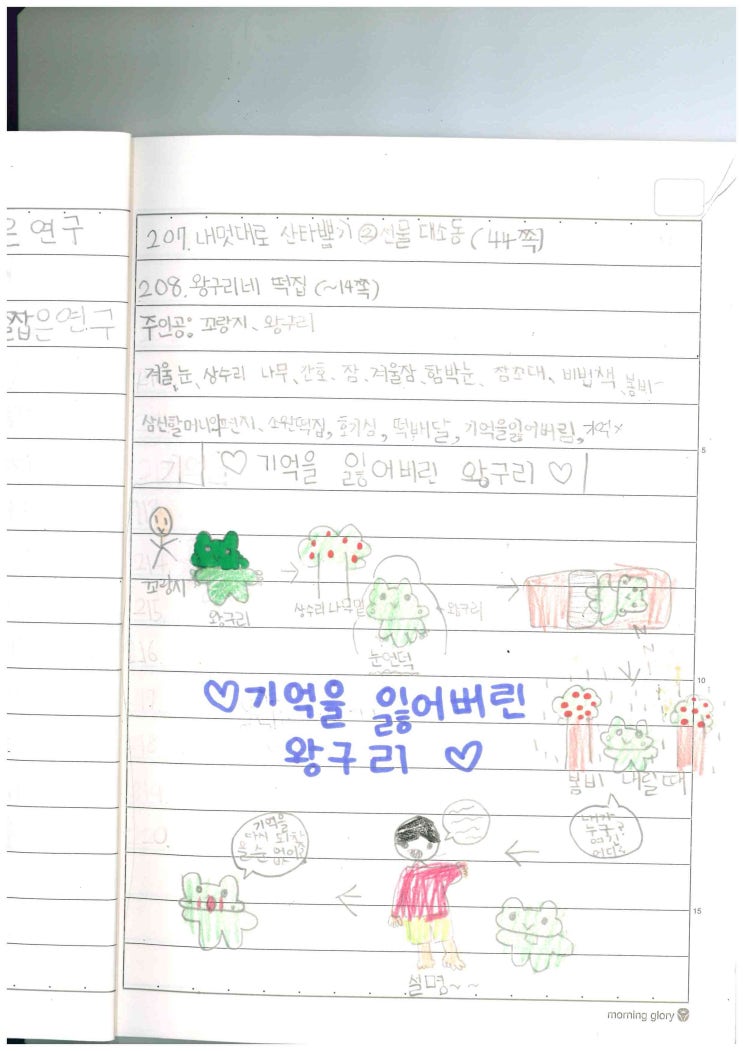 은 연구
잡은 연구
207. 내멋대로 산타뽑기 ② 선물 대소동 (44쪽)
208. 왕구리네 떡집 (~14쪽)
주인공: 꼬랑지, 왕구리
겨울, 눈, 상수리 나무, 간호, 잠, 겨울잠, 함박눈, 참꼬대, 비법책, 봄비~
삼신할머니와편지, 소원떡집, 호기심, 떡배달, 기억을잃어버림, 기억x
기
♡ 기억을 잃어버린 왕구리 ♡
꼬랑지
왕구리
상수리 나무밑
왕구리
눈언덕
5
z
z
10
♡기억을 잃어버린
왕구리 ♡
봄비 내릴 때
내가
누구?
여긴
어디?
기억을
다시 되찾
을 순 없어?
설명~~
15
morning glory